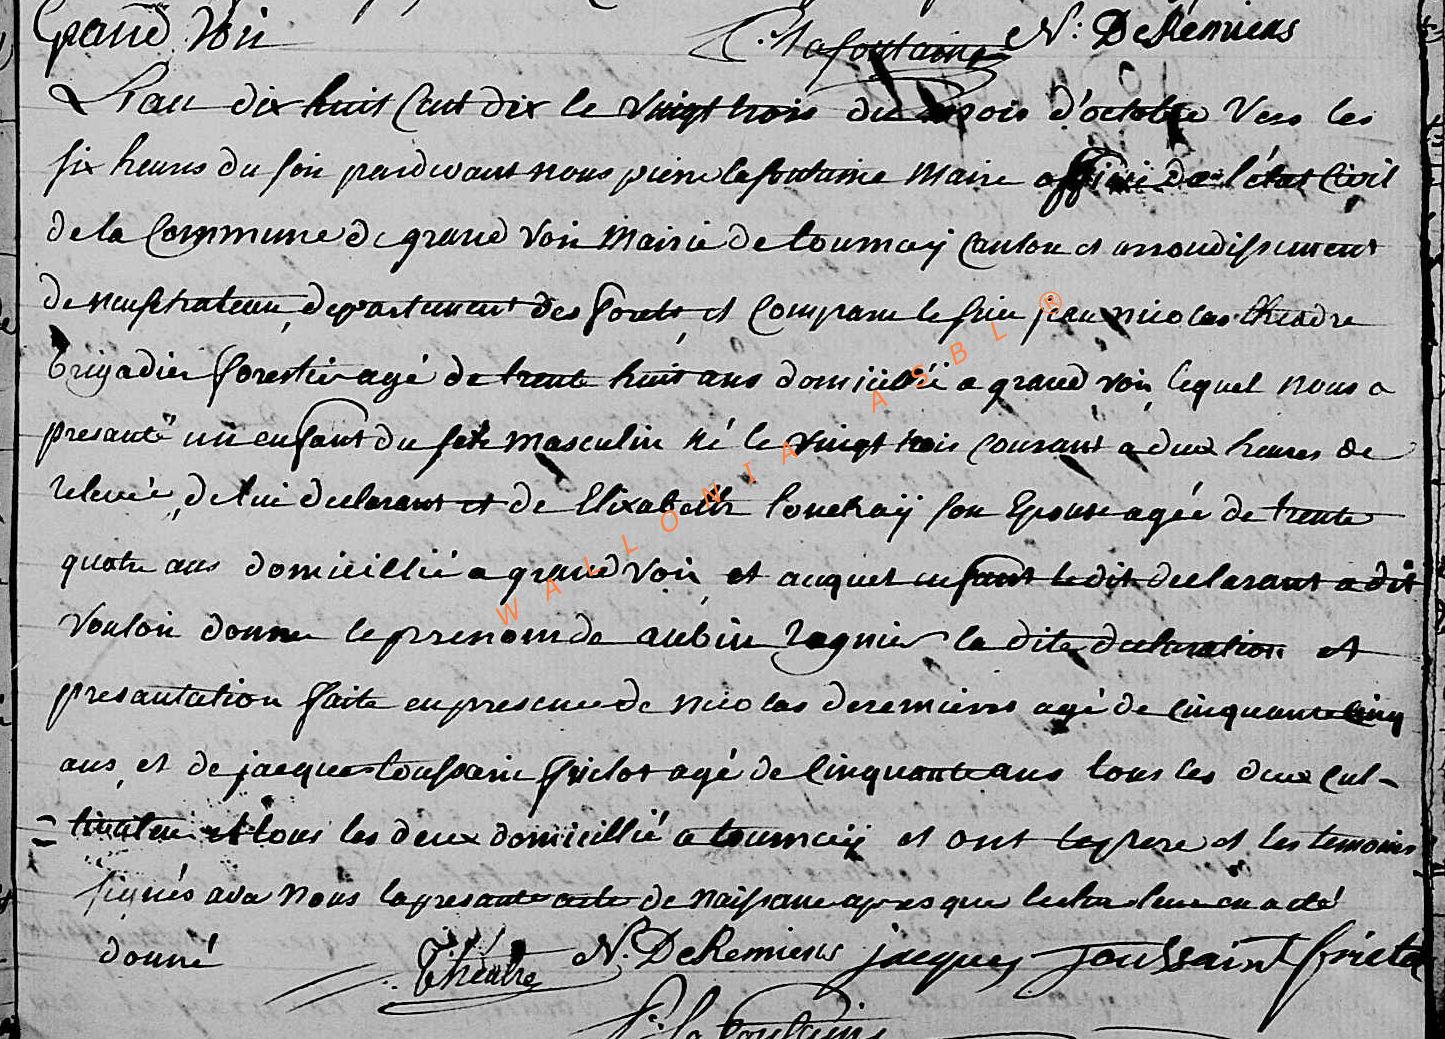 Grand Voir
P. : Lafontaine N: DeRemiens
L'an dix huit Cent dix le vingt trois du mois d'octobre Vers les
six heures du soir pardevant nous pierre lafontaine Maire officier de l'état Civil
de la Commune de grand Voir Mairie de tournay Canton et arrondissement
de neufchateau, departement des forets, et Comparu le sieur jean nicolas theatre
brigadier forestier agé de trente huit ans domicilié a grand voir, lequel nous a
presanté un enfant du sexe masculin né le vingt trois courant a deux heures de
relevée, de lui declarant et de Elixabeth louchaÿ son Epouse agée de trente
quatre ans domicilliée a grand Voir, et auquel enfant le dit declarant a dit
Vouloir donner le prenom de aubin Regnier la dite declaration et
presantation faite en presence de nicolas deremiens agé de Cinquante Cinq
ans, et de jacque toussain frictot agé de Cinquante ans tous les deux Cul-
= tivateur et tous les deux domicillié a tournaÿ et ont le pere et les temoins
signés avec nous la presante acte de naissance apres que lecture leur en a été
donné
Théatre N. DeRemiens jacques toussaint
P: lafontaine
W A L L O N I A A S B L ®